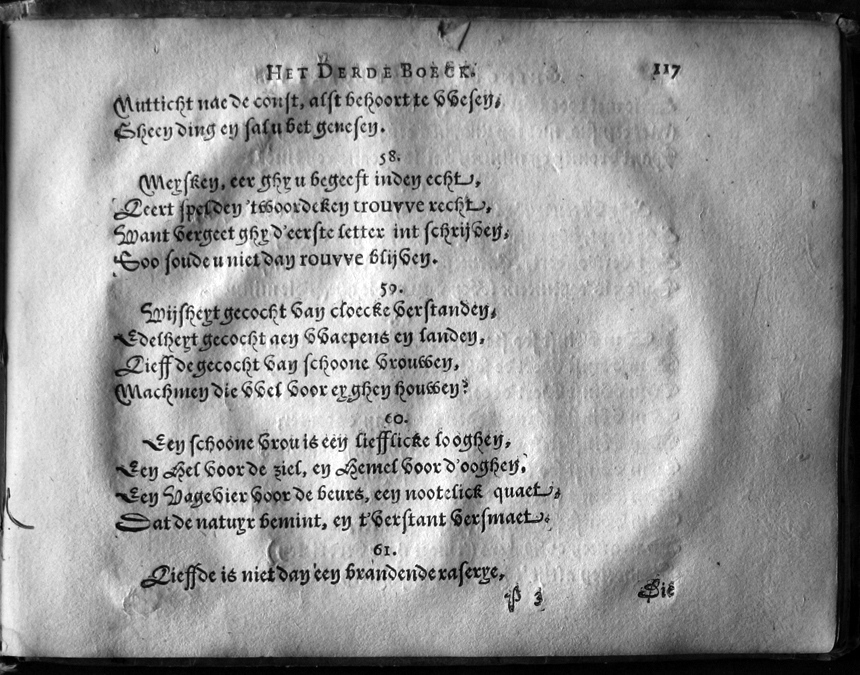 HET DERDE BOECK. 117
Mutticht nae de const, alst behoort te VVesen,
Gheen ding en sal u bet genesen.
58.
Meysken, eer ghy u begeeft inden echt,
Leert spelden 'twoordeken trouvve recht,
Want vergeet ghy d'eerste letter int schrijven,
Soo soude u niet dan rouvve blijven.
59.
Wijsheyt gecocht van cloecke verstanden,
Edelheyt gecocht aen VVaepens en landen,
Lieff de gecocht van schoone vrouwen,
Machmen die VVel voor eyghen houwen?
60.
Een schoone vrou is een liefflicke looghen,
Een Hel voor de ziel, en Hemel voor d'ooghen,
Een Vagevier voor de beurs, een nootelick quaet,
Dat de natuyr bemint, en t'verstant versmaet.
61.
Lieffde is niet dan een brandende raserye,
P 3 Die